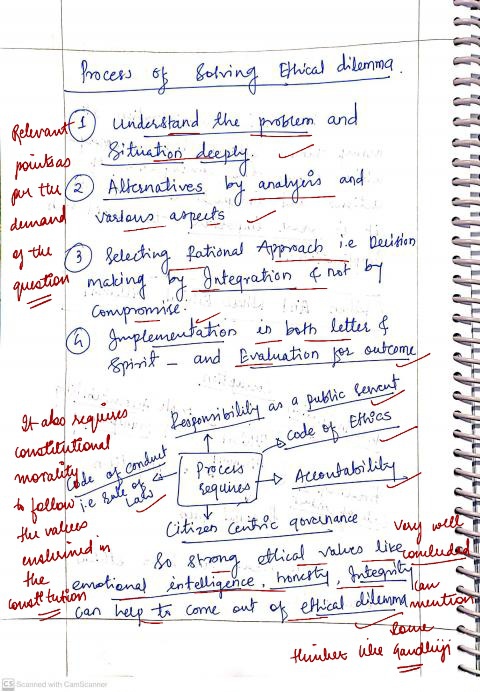 Process of Solving Ethical dilemma.
① Understand the problem and
Situation deeply.
② Alternatives by analysis and
various aspects
③ Selecting Rational Approach i.e Decision
making by Integration & not by
compromise.
④ Implementation is both letter &
Spirit – and Evaluation for outcome
Relevant
points as
per the
demand
of the
question
Responsibility as a public servent
Code of Ethics
Code of conduct
i.e Rule of
Law
Process
requires
Accountability
Citizen Centric governance
It also requires
constitutional
morality
to follow
the values
enshrined in
the
constitution
So strong ethical values like
emotional intelligence, honesty, Integrity
can help to come out of ethical dilemma
very well
concluded
can
mention
some
thinker like Gandhiji
CS Scanned with CamScanner